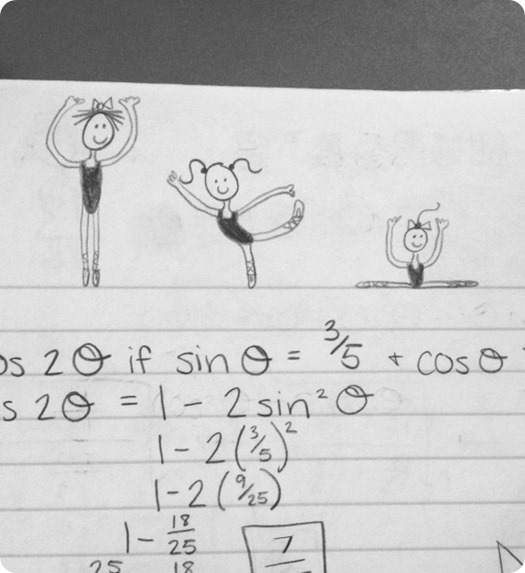 os 2θ if sin θ = 3/5 + cos θ
s 2θ = 1 - 2 sin² θ
1 - 2 (3/5)²
1 - 2 (9/25)
1 - 18/25
25 18 7